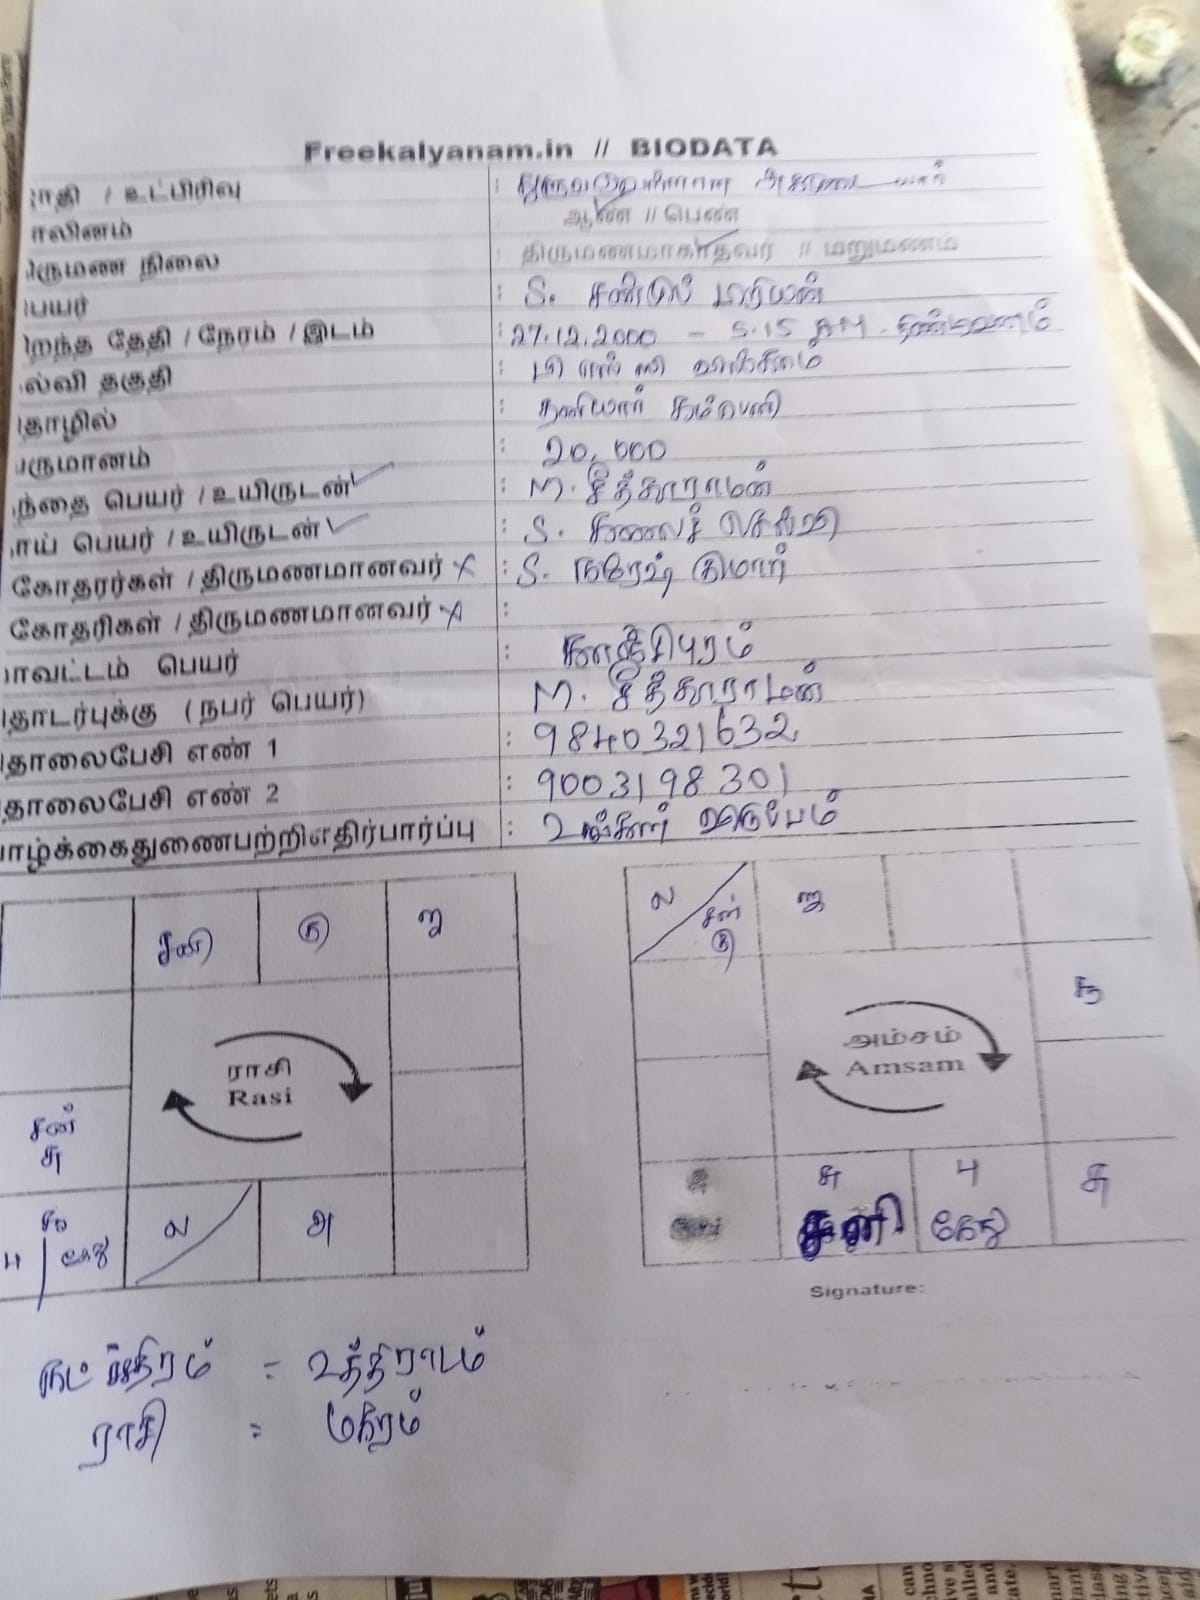 Freekalyanam.in // BIODATA
ாதி / உட்பிரிவு :
ாலினம் ஆண் // பெண்
ருமண நிலை : திருமணமாகாதவர் // மறுமணம்
பெயர் : S.
றந்த தேதி / நேரம் / இடம் : 27.12.2000 - 5.15 AM.
ல்வி தகுதி :
தொழில் : தனியார் கம்பெனி
ருமானம் : 20,000
ந்தை பெயர் / உயிருடன் ✓ : M. சீத்தாராமன்
ாய் பெயர் / உயிருடன் ✓ : S. கலைச் செல்வி
கோதரர்கள் / திருமணமானவர் x : S. நரேஷ் குமார்
கோதரிகள் / திருமணமானவர் x :
ாவட்டம் பெயர் : காஞ்சிபுரம்
தொடர்புக்கு (நபர் பெயர்) M. சீத்தாராமன்
தொலைபேசி எண் 1 : 9840321632
தொலைபேசி எண் 2 : 9003198301
ாழ்க்கைதுணைபற்றிஎதிர்பார்ப்பு : உங்கள் விருப்பம்
சனி குரு ரு
சன்
சு
பு கேது
ல
அ
ராசி
Rasi
ல
சன்
கு
அம்சம்
Amsam
சு
சனி
பு
கேது
Signature:
நட்சத்திரம் = உத்திராடம்
ராசி = மகரம்